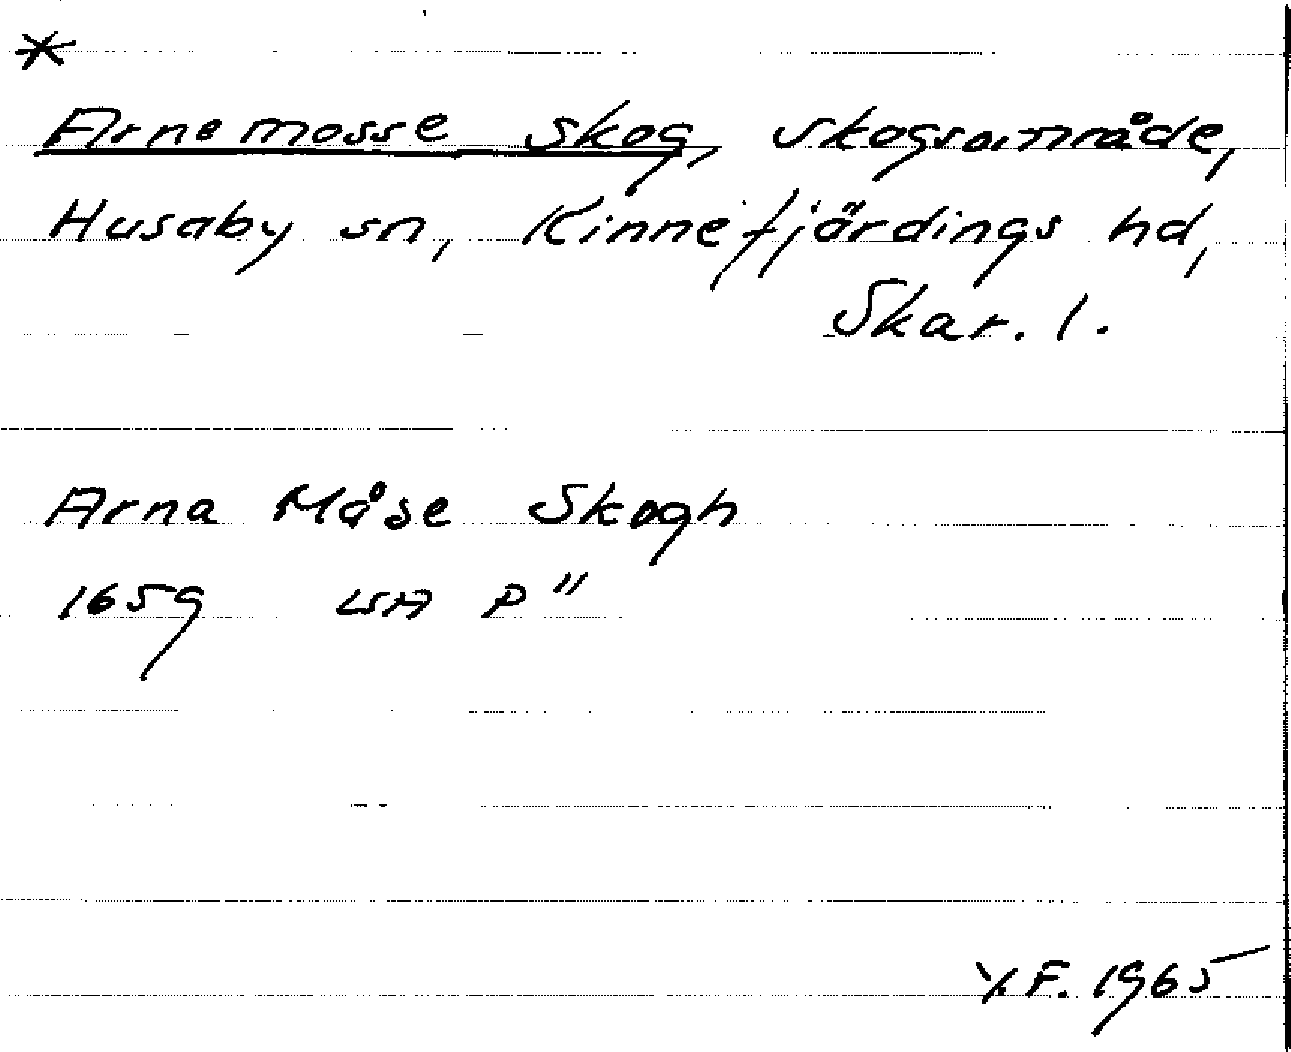 *
Arnemosse Skog, skogsområde,
Husaby sn, Kinnefjärdings hd,
Skar. l.
Arna Måse Skogh
1659 LSA P"
Y.F. 1965